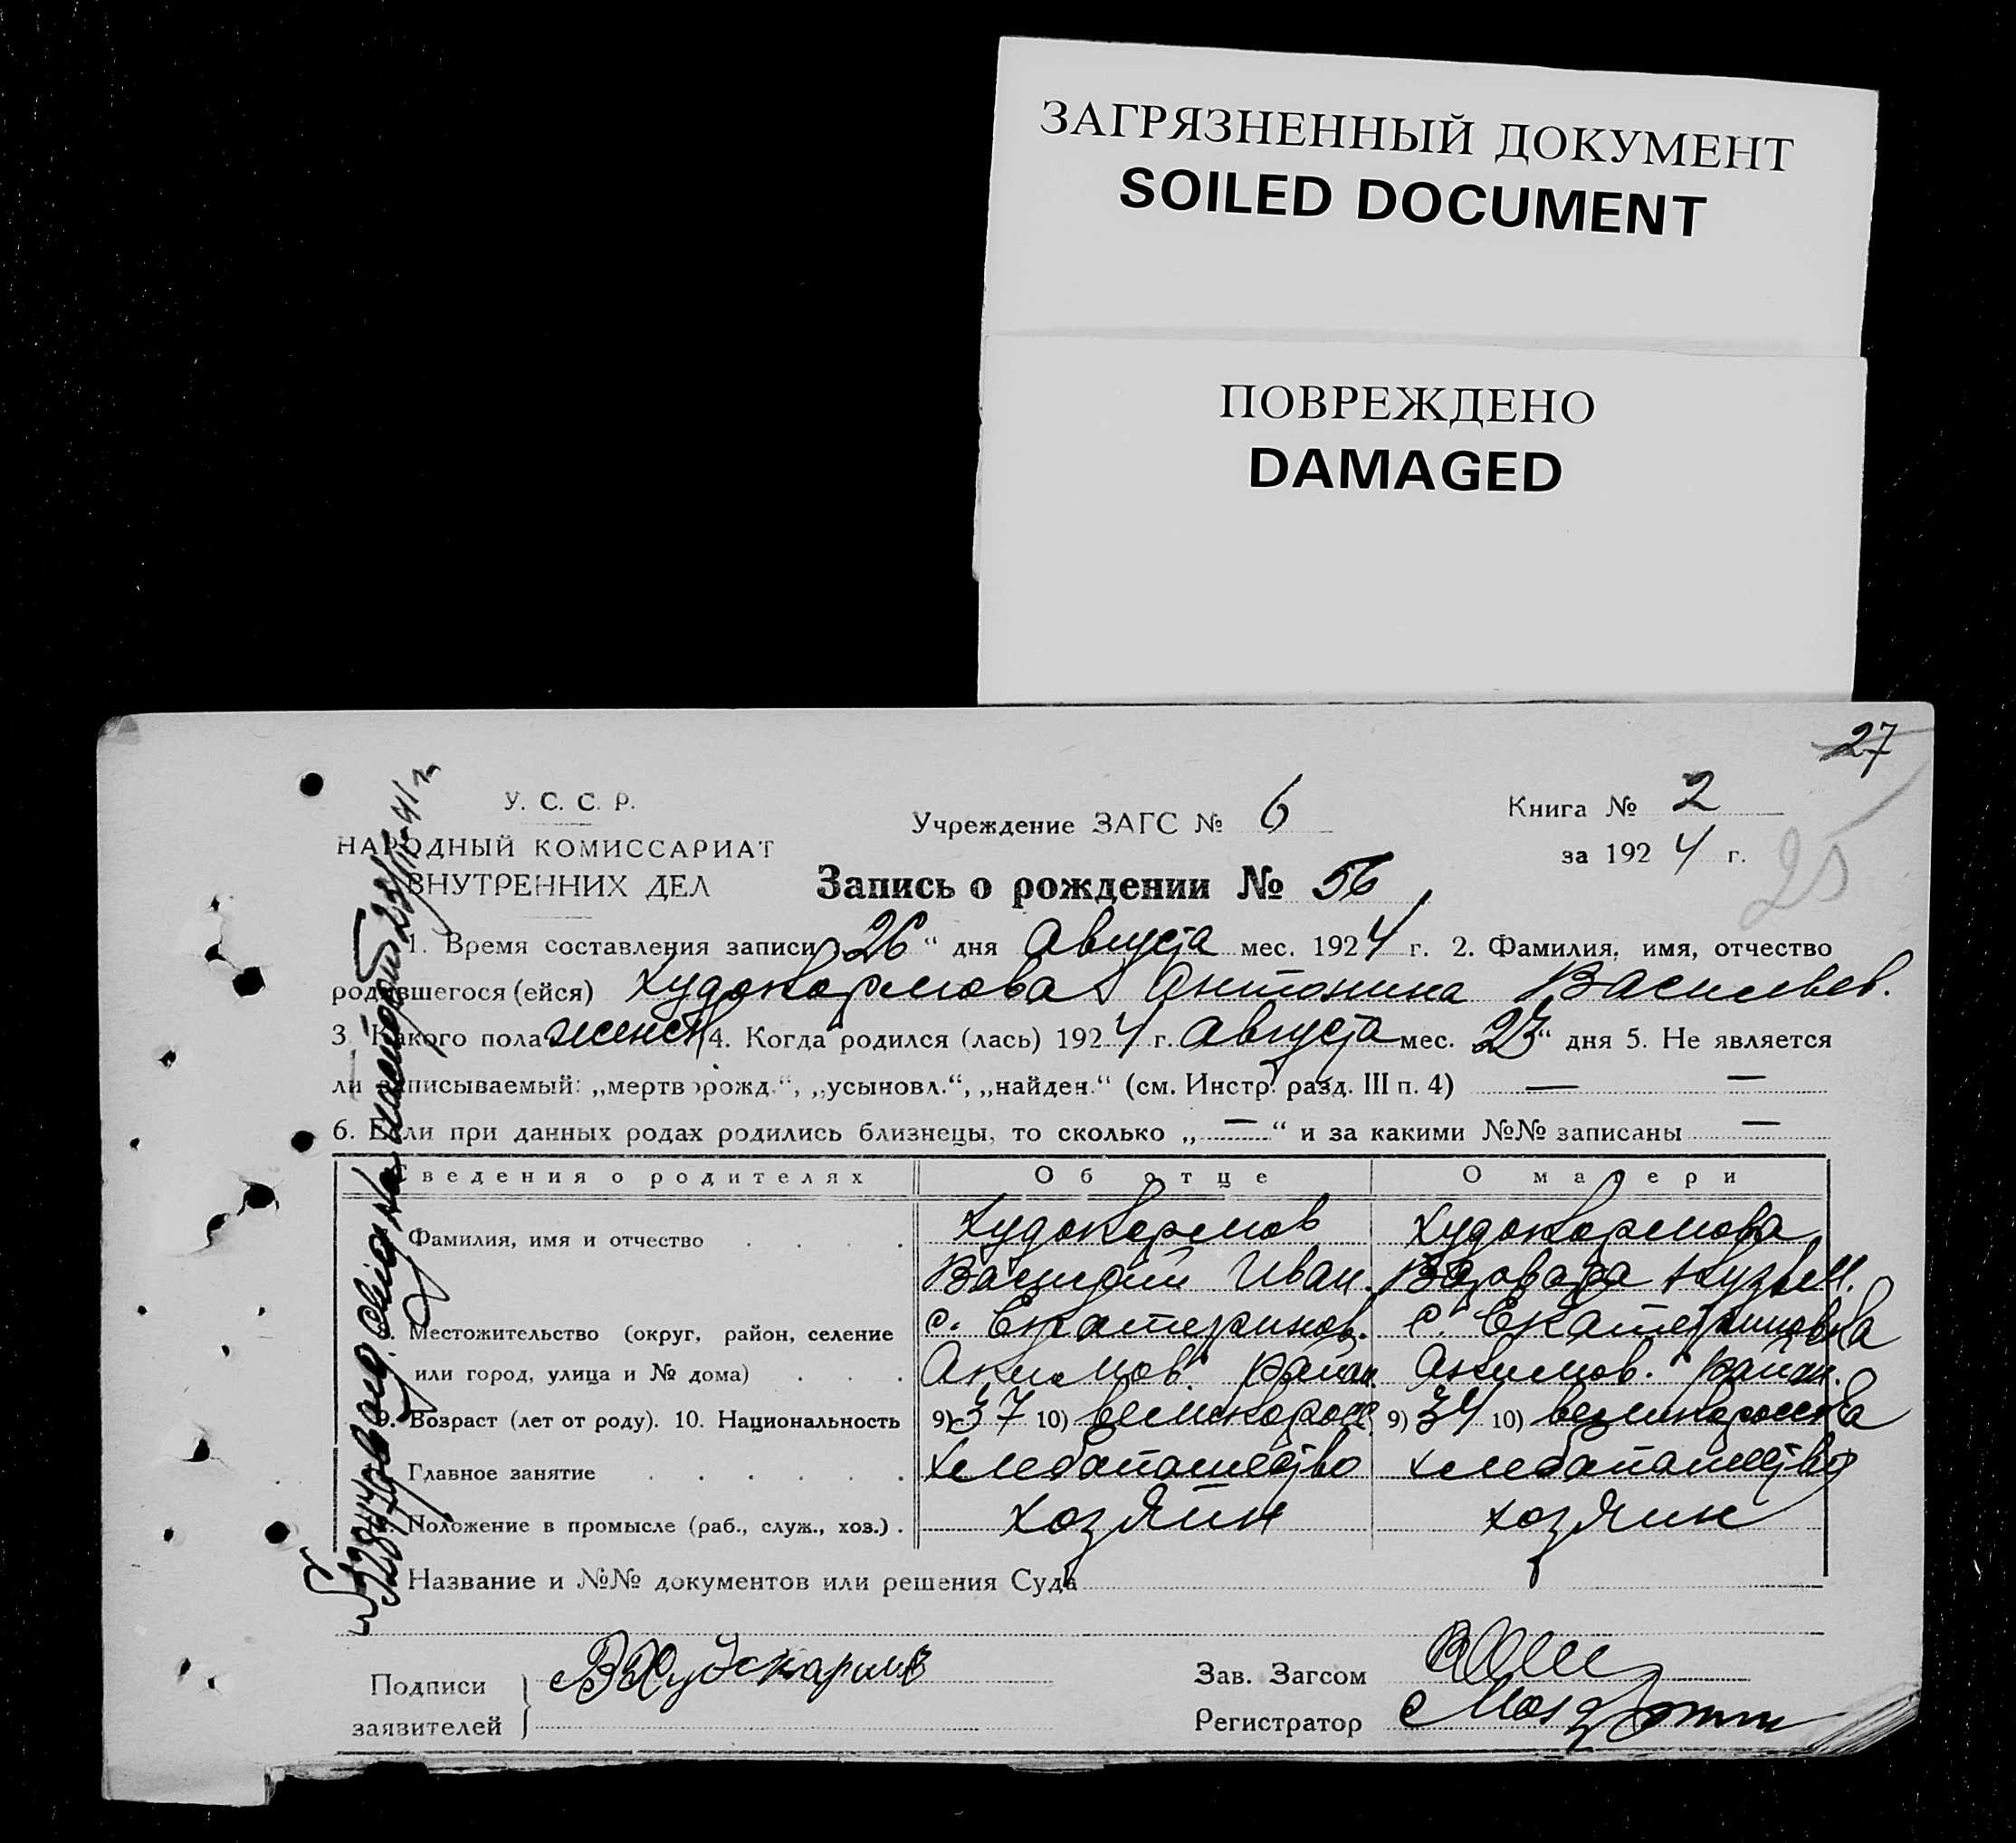 ЗАГРЯЗНЕННЫЙ ДОКУМЕНТ
SOILED DOCUMENT
ПОВРЕЖДЕНО
DAMAGED
27
25
У. С. С. Р.
НАРОДНЫЙ КОМИССАРИАТ
ВНУТРЕННИХ ДЕЛ
Учреждение ЗАГС № 6
Книга № 2
за 1924 г.
Запись о рождении № 56
1. Время составления записи „26“ дня Августа мес. 1924 г. 2. Фамилия, имя, отчество
родившегося (ейся) Худокормова Антонина Васильев.
3. Какого пола женск 4. Когда родился (лась) 1924 г. Августа мес. 23“ дня 5. Не является
ли записываемый: „мерткорожд.“, „усыновл.“, „найден.“ (см. Инстр. разд. III п. 4) — —
6. Если при данных родах родились близнецы, то сколько „—“ и за какими №№ записаны —
Сведения о родителях Об отце О матери
Фамилия, имя и отчество Худокормов Худокормова
Василий Иван. Варвара Кузьм.
Местожительство (округ, район, селение с. Екатеринов. с. Екатериновка
или город, улица и № дома) Акимов. район Акимов. район.
9. Возраст (лет от роду). 10. Национальность 9) 37 10) великоросс 9) 34 10) великоросска
Главное занятие хлебопашество хлебопашество
Положение в промысле (раб., служ., хоз.) хозяин хозяин
Название и №№ документов или решения Суда
Подписи
заявителей
В Худокормов
Зав. Загсом
Регистратор